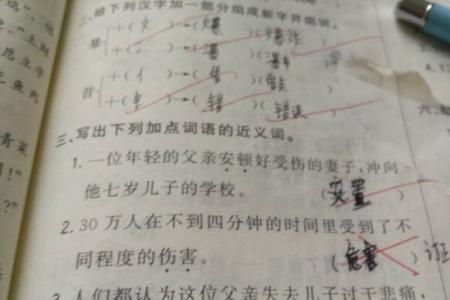 二、给下列汉字加一部分组成新字并组词。
暴 +(火)→(爆)(爆炸)
+( )→(瀑)(瀑布)
昔 +(亻)→(借)(借走)
+(钅)→(错)(错误)
三、写出下列加点词语的近义词。
1. 一位年轻的父亲安顿好受伤的妻子,冲向
他七岁儿子的学校。 (安置)
2. 30 万人在不到四分钟的时间里受到了不
同程度的伤害。 (危害)
3. 人们都认为这位父亲失去儿子过于悲痛,